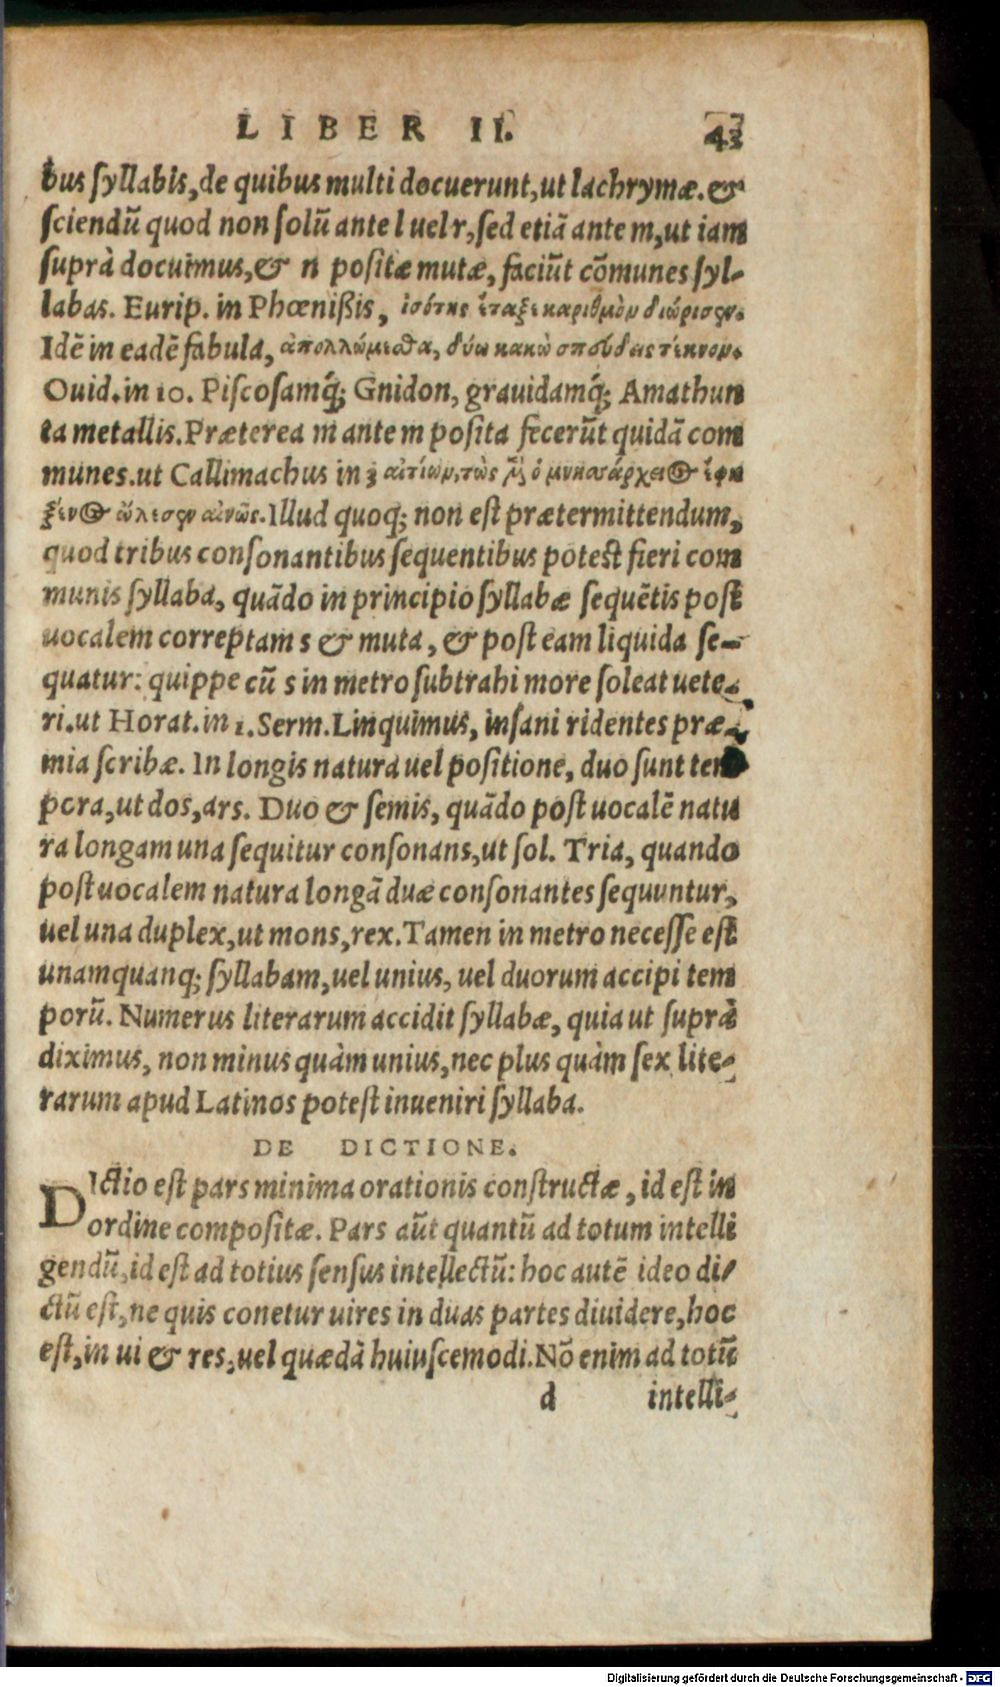 LIBER II. 43
bus ſyllabis, de quibus multi docuerunt, ut lachrymæ. &
ſciendū quod non ſolū ante l uel r, ſed etiā ante m, ut iam
ſuprà docuimus, & n poſitæ mutæ, faciūt cōmunes ſyl-
labas. Eurip. in Phœnißis, ἰσότης ἔταξε καριθμὸν διώρισεν.
Idē in eadē fabula, ἀπολλώμεσθα, δύω κακὼ σπεύδεις τέκνον.
Ouid. in 10. Piſcoſamq́; Gnidon, grauidamq́; Amathun
ta metallis. Præterea m ante m poſita fecerūt quidā com
munes. ut Callimachus in 3 αἰτίων, τὼς
ὤλεσεν αἰνῶς. Illud quoq; non eſt prætermittendum,
quod tribus conſonantibus ſequentibus poteſt fieri com
munis ſyllaba, quādo in principio ſyllabæ ſequētis poſt
uocalem correptam s & muta, & poſt eam liquida ſe-
quatur: quippe cū s in metro ſubtrahi more ſoleat uete-
ri. ut Horat. in 1. Serm. Linquimus, inſani ridentes præ-
mia ſcribæ. In longis natura uel poſitione, duo ſunt tem
pora, ut dos, ars. Duo & ſemis, quādo poſt uocalē natu
ra longam una ſequitur conſonans, ut ſol. Tria, quando
poſt uocalem natura longā duæ conſonantes ſequuntur,
uel una duplex, ut mons, rex. Tamen in metro neceſſe eſt
unamquanq; ſyllabam, uel unius, uel duorum accipi tem
porū. Numerus literarum accidit ſyllabæ, quia ut ſuprà
diximus, non minus quàm unius, nec plus quàm ſex lite-
rarum apud Latinos poteſt inueniri ſyllaba.
DE DICTIONE.
DIctio eſt pars minima orationis conſtructæ, id eſt in
ordine compoſitæ. Pars aūt quantū ad totum intelli
gendū, id eſt ad totius ſenſus intellectū: hoc autē ideo di-
ctū eſt, ne quis conetur uires in duas partes diuidere, hoc
eſt, in ui & res, uel quædā huiuſcemodi. Nō enim ad totū
d intelli-
Digitalisierung gefördert durch die Deutsche Forschungsgemeinschaft - DFG